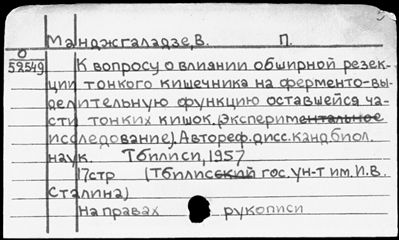 Манджгаладзе, В. П.
О
52549
К вопросу о влиании обширной резек-
ции тонкого кишечника на ферменто-вы-
делительную функцию оставшейся ча-
сти тонких кишок. (Экспериментальное
исследование). Автореф. дисс. канд биол.
наук. Тбилиси, 1957
17стр (Тбилисский гос. ун-т им. И.В.
Сталина)
на правах рукописи